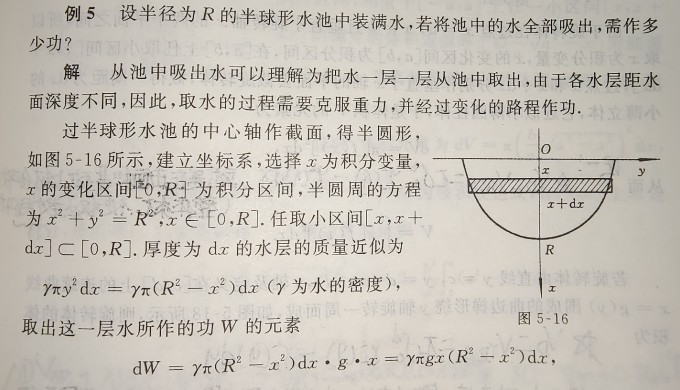 例 5 设半径为 R 的半球形水池中装满水,若将池中的水全部吸出,需作多
少功?
解 从池中吸出水可以理解为把水一层一层从池中取出,由于各水层距水
面深度不同,因此,取水的过程需要克服重力,并经过变化的路程作功.
过半球形水池的中心轴作截面,得半圆形,
如图 5-16 所示,建立坐标系,选择 x 为积分变量,
x 的变化区间[0,R] 为积分区间,半圆周的方程
为 x² + y² = R²,x ∈ [0,R]. 任取小区间[x,x +
dx] ⊂ [0,R]. 厚度为 dx 的水层的质量近似为
γπy²dx = γπ(R² − x²)dx (γ 为水的密度),
取出这一层水所作的功 W 的元素
dW = γπ(R² − x²)dx · g · x = γπgx(R² − x²)dx,
O
x
y
x+dx
R
x
图 5-16